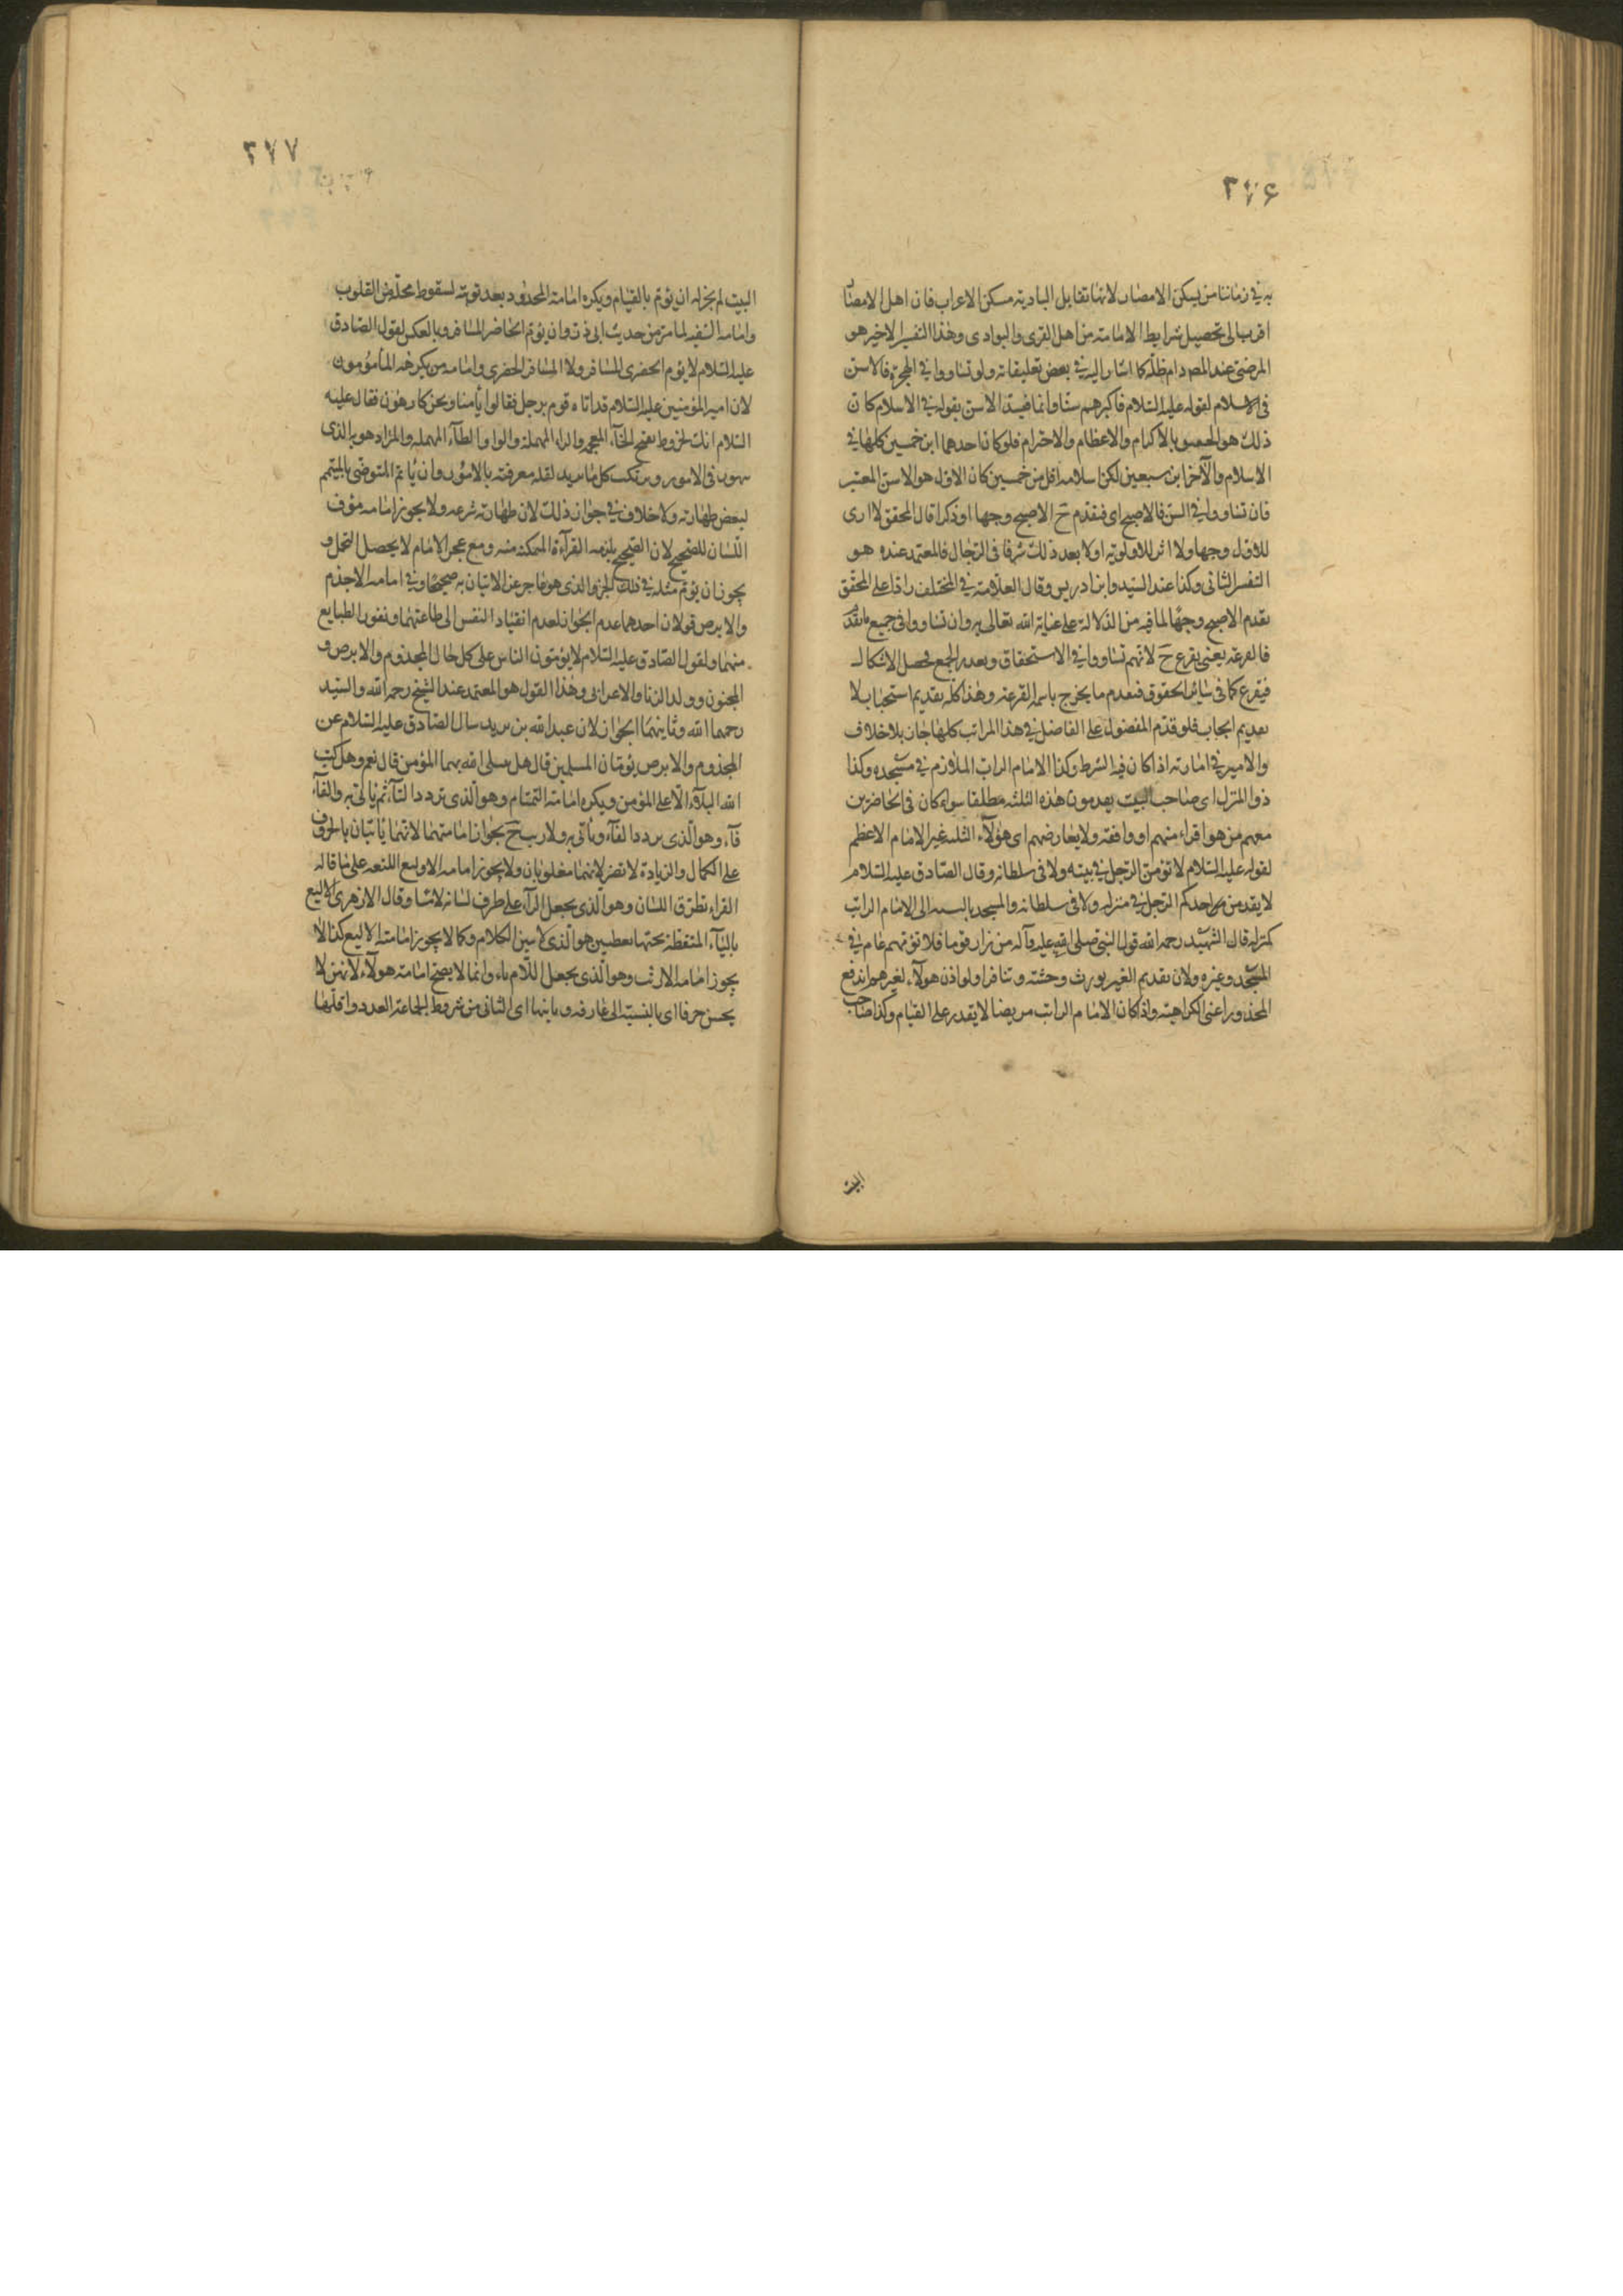 ۲۷۶
به في زماننا من يسكن الامصار لانها تقابل البادية مسكن الاعراب فان اهل الامصار
اقرب الى تحصيل شرايط الامامة من اهل القرى والبوادى وهذا التفسير الاخير هو
المرضى عند المصه دام ظله كما اشار اليه في بعض تعليقاته ولو تساووا في الهجرة فالاسن
فى الاسلام لقوله عليه السلام فاكبرهم سنا وانما قيد الاسن بقوله في الاسلام كان
ذلك هو بالاكرام والاعظام والاحترام فلو كان احدهما ابن خمسين كلها في
الاسلام والآخر ابن سبعين لكن اسلامه اقل من خمسين كان الاول هو الاسن المعتبر
فان تساووا في السن فالاصبح اى فيقدم ح الاصبح وجها او ذكرا قال المحقق لا ارى
للاول وجها ولا اثر للاولوية اولا بعد ذلك شرفا فى الرجال فالمعتمد عنده هو
التفسير الثانى وكذا عند السيد وابن ادريس وقال العلامة في المختلف رادا على المحقق
يقدم الاصبح وجها لما فيه من الدلالة على عناية الله تعالى به وان تساووا فى جميع ما تقدم
فالقرعة يعنى يقرع ح لانهم تساووا في الاستحقاق وبعدم الجمع يحصل الاشكال
فيقرع كما فى سائر الحقوق فيقدم ما يخرج باسمه القرعة وهذا كله تقديم استحباب لا
تقديم ايجاب فلو قدم المفضول على الفاضل في هذا المراتب كلها جاز بلا خلاف
والامير في امارته اذا كان فيه الشرط وكذا الامام الراتب الملازم في مسجده وكذا
ذو المنزل اى صاحب البيت يقدمون هذه الثلثة مطلقا سواء كان فى الحاضرين
معهم من هو اقراء منهم او وافقه ولا يعارضهم اى هؤلاء الثلثة غير الامام الاعظم
لقوله عليه السلام لا تؤمن الرجل في بيته ولا فى سلطانه وقال الصادق عليه السلام
لا يقدمن احدكم الرجل في منزله ولا فى سلطانه والمسجد بالنسبة الى الامام الراتب
كمنزله قال الشهيد رحمه الله قول النبى صلى الله عليه وآله من زار قوما فلا تؤمهم عام في
المسجد وغيره ولان تقديم الغير يورث وحشة وتنافرا ولو اذن هولاء لغيرهم اندفع
المحذور اعنى الكراهية واذا كان الامام الراتب مريضا لا يقدر على القيام وكذا صاحب
البيت
۲۷۷
البيت لم يجز له ان يؤم بالقيام ويكره امامة المحدود بعد توبته لسقوط محله من القلوب
وامامة السفيه لما مر من حديث ابى ذر وان يؤم الحاضر المسافر وبالعكس لقول الصادق
عليه السلام لا يؤم الحضرى المسافر ولا المسافر الحضرى وامامة من يكرهه المأمومون
لان امير المؤمنين عليه السلام قد اتاه قوم برجل فقالوا يأمنا ونحن كارهون فقال عليه
السلام انك لخروط بفتح الخآء المعجمه والراء المهملة والواو والطآء المهمله والمراد هو الذى
يتهور فى الامور ويرتكب كل ما يريد لقلة معرفته بالامور وان يأتم المتوضى بالمتيمم
لبعض طهارته ولا خلاف في جواز ذلك لان طهارته شرعيه ولا يجوز امامه مؤف
اللسان للصحيح لان الصحيح يلزمه القرآءة الممكنه منه ومع عجز الامام لا يحصل التحمل و
يجوز ان يؤم مثله في ذلك الجزو الذى هو عاجز عن الاتيان به صحيحا وفي امامه الاجذم
والابرص قولان احدهما عدم الجواز لعدم انقياد النفس الى طاعتهما ونفور الطبايع
منهما ولقول الصادق عليه السلام لا يؤمون الناس على كل حال المجذوم والابرص و
المجنون وولد الزنا والاعرابى وهذا القول هو المعتمد عند الشيخ رحمه الله والسيد
رحمهما الله وثانيهما الجواز لان عبدالله بن يزيد سال الصادق عليه السلام عن
المجذوم والابرص يؤمان المسلمين قال هل يبتلى الله بهما المؤمن قال نعم وهل كتب
الله البلآء الا على المؤمن ويكره امامة التمتام وهو الذى يردد التآء ثم يأتى به والفآ
فآء وهو الذى يردد الفآء ويأتى به ولا ريب ح بجواز امامتهما لانهما يأتيان بالحروف
على الكمال والزيادة لا تضر لانهما مغلوبان ولا يجوز امامه الاوليغ اللثغه على ما قاله
الفراء تطرق اللسان وهو الذى يجعل الرآء على طرف لسانه لاما وقال الازهرى الاليغ
باليآء المنقطة تحتها بنقطتين هو الذى لا يبين الكلام وكما لا يجوز امامة الاليغ كذا لا
يجوز امامه الارث وهو الذى يجعل اللام ياء وانما لا يصح امامة هولاء لانهن لا
يحسن حرفا اى بالنسبة الى عارفه وثانيها اى الثانى من شروط الجماعة العدد واقلها